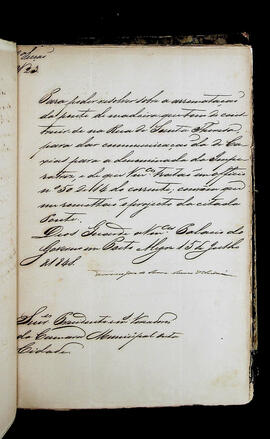 Para poder resolver sobre a arrematação
da ponte de madeira que tem de cons
truir-se na Rua de Santa Thereza
para dar communicação da de Ca
xias para a denominada da Impera
triz, e de que Vm.ces tratão em officio
nº 50 de 14 do corrente, convem que
me remettão o projecto da citada
Ponte.
Deos Guarde a Vm.ces Palacio do
Governo em Porto Alegre 15 de Julho
de 1846
Senr.es Presidente e Vereadores
da Camara Municipal desta
Cidade